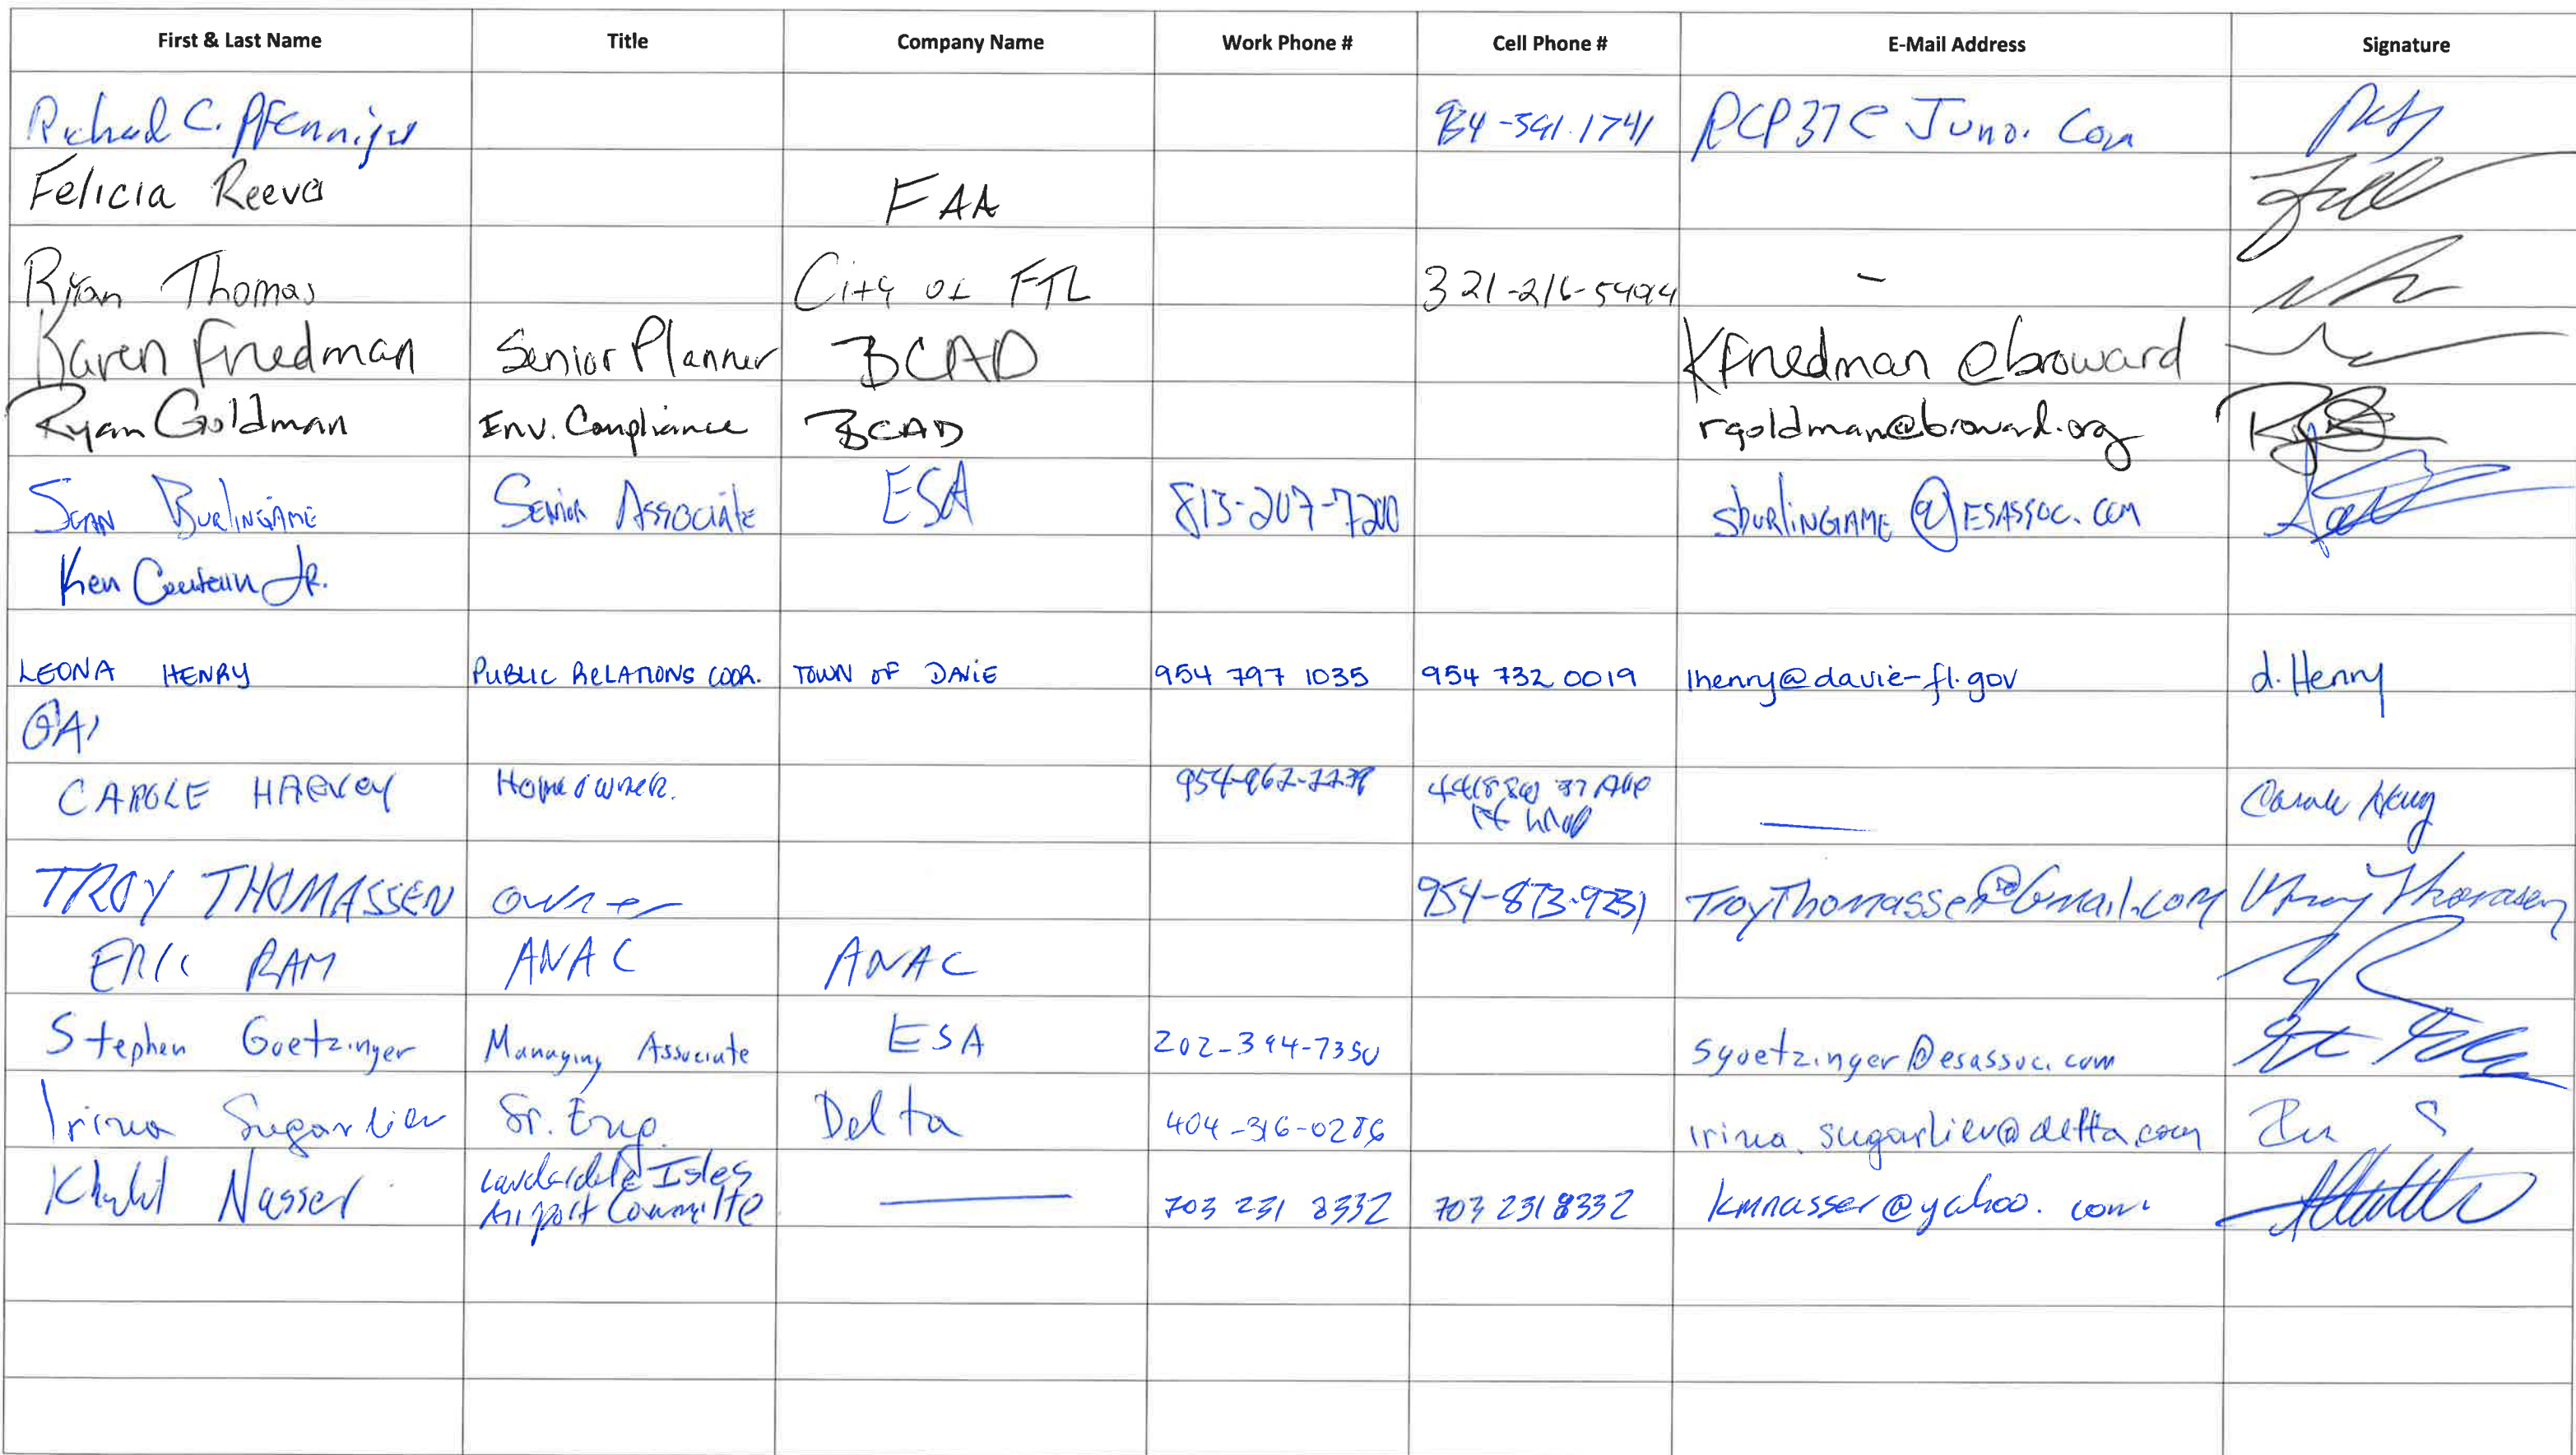 First & Last Name Title Company Name Work Phone # Cell Phone # E-Mail Address Signature
Richard C. Pfenniger 954-541.1741 RCP37@Juno.Com
Felicia Reeves FAA
Ryan Thomas City of FTL 321-216-5494 -
Karen Friedman Senior Planner BCAD Kfriedman @broward
Ryan Goldman Env. Compliance BCAD rgoldman@broward.org
Sean Burlingame Senior Associate ESA 813-207-7200 sburlingame @ESASSOC.COM
Ken Jr.
LEONA HENRY PUBLIC RELATIONS COOR. TOWN OF DAVIE 954 797 1035 954 732 0019 lhenry@davie-fl.gov d. Henry
CAROLE HARVEY Homeowner.
TROY THOMASSEN owner 954-873-9231 TroyThomassen@Gmail.com Troy Thomassen
ERIC RAM ANAC ANAC
Stephen Goetzinger Managing Associate ESA 202-394-7350 sgoetzinger@esassoc.com
Irina Sugarliev Sr. Eng. Delta 404-316-0286 irina.sugarliev@delta.com
Khalil Nasser Lauderdale Isles Airport Committe 703 231 8332 703 231 8332 kmnasser@yahoo.com